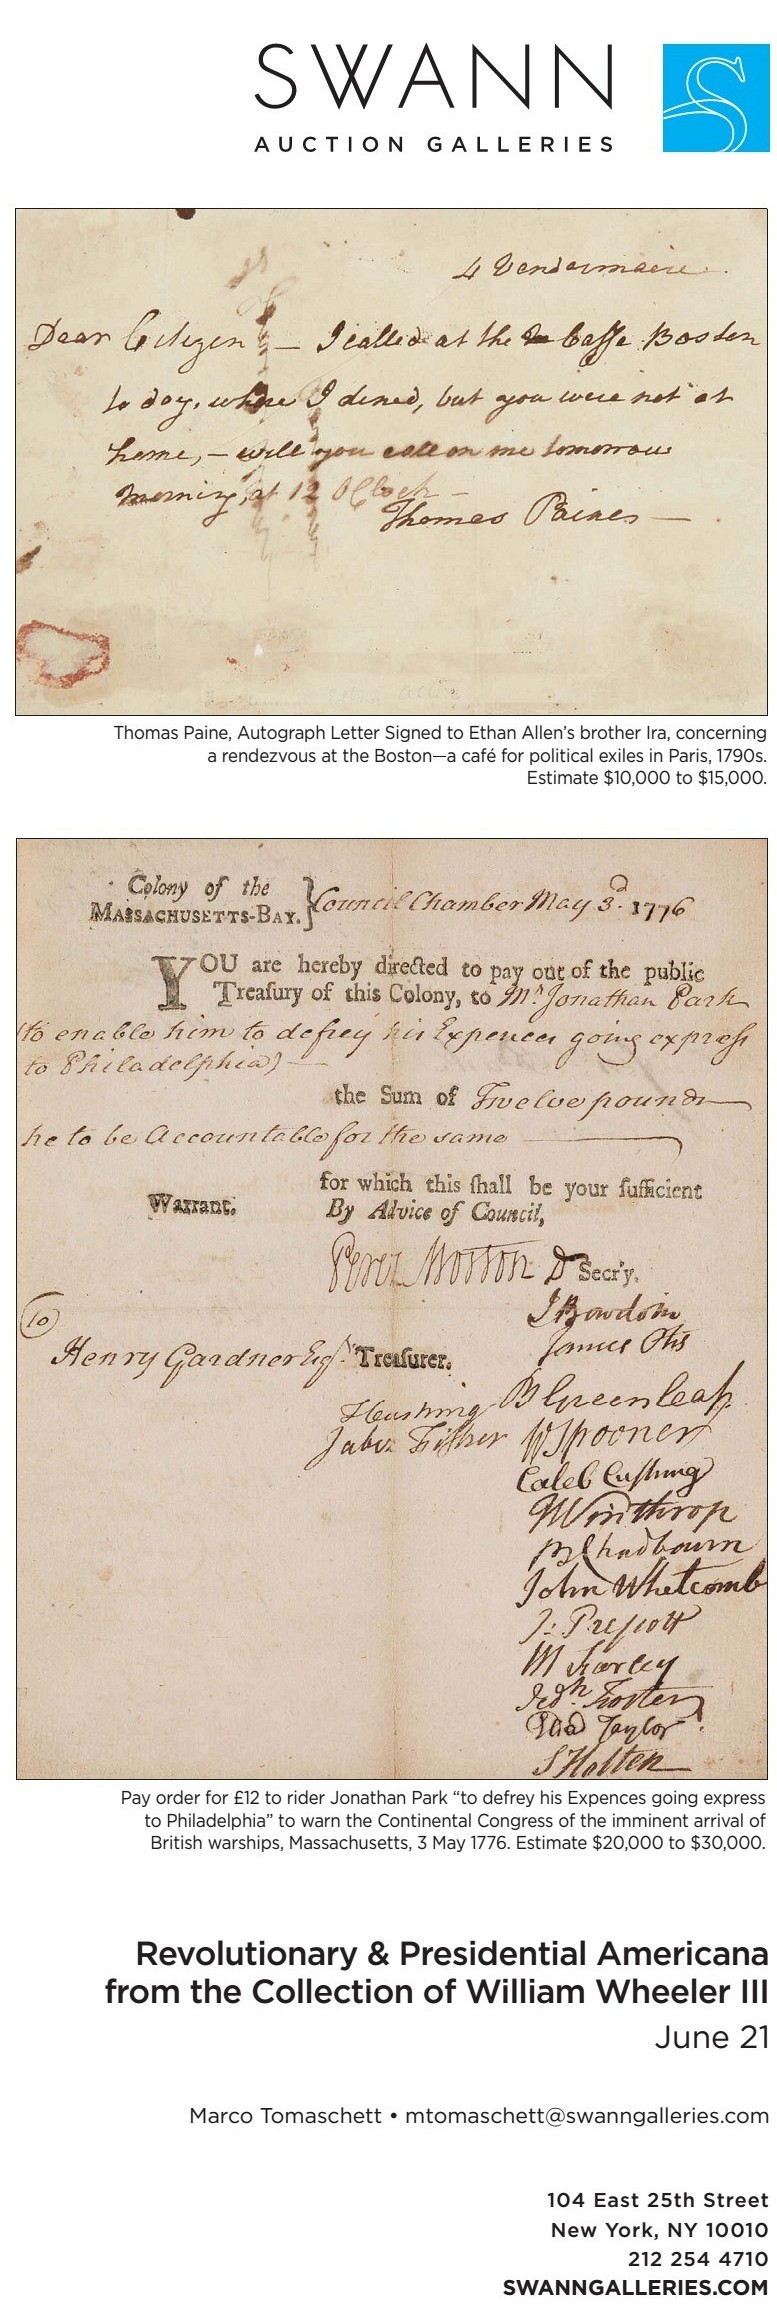 SWANN
AUCTION GALLERIES
4 Vendermaire
Dear Citizen — I called at the Caffe Boston
to day, where I dined, but you were not at
home, — will you call on me tomorrow
morning, at 12 OClock —
Thomas Paine —
Thomas Paine, Autograph Letter Signed to Ethan Allen’s brother Ira, concerning
a rendezvous at the Boston—a café for political exiles in Paris, 1790s.
Estimate $10,000 to $15,000.
Colony of the
MASSACHUSETTS-BAY. } Council Chamber May 3d. 1776
YOU are hereby directed to pay out of the public
Treaſury of this Colony, to Mr Jonathan Park
(to enable him to defrey his Expences going express
to Philadelphia) —
the Sum of Twelve pounds
he to be Accountable for the same
for which this ſhall be your ſufficient
Warrant.
By Advice of Council,
Perez Morton D Secr'y.
J Bowdoin
James Otis
(To)
Henry Gardner Esqr. Treaſurer.
B Greenleaf
T Cushing
Jabez Fisher
W Spooner
Caleb Cushing
J Winthrop
B Chadbourn
John Whetcomb
J: Prescott
M Farley
Jedh. Foster
Eldad Taylor
S Holten
Pay order for £12 to rider Jonathan Park “to defrey his Expences going express
to Philadelphia” to warn the Continental Congress of the imminent arrival of
British warships, Massachusetts, 3 May 1776. Estimate $20,000 to $30,000.
Revolutionary & Presidential Americana
from the Collection of William Wheeler III
June 21
Marco Tomaschett • mtomaschett@swanngalleries.com
104 East 25th Street
New York, NY 10010
212 254 4710
SWANNGALLERIES.COM